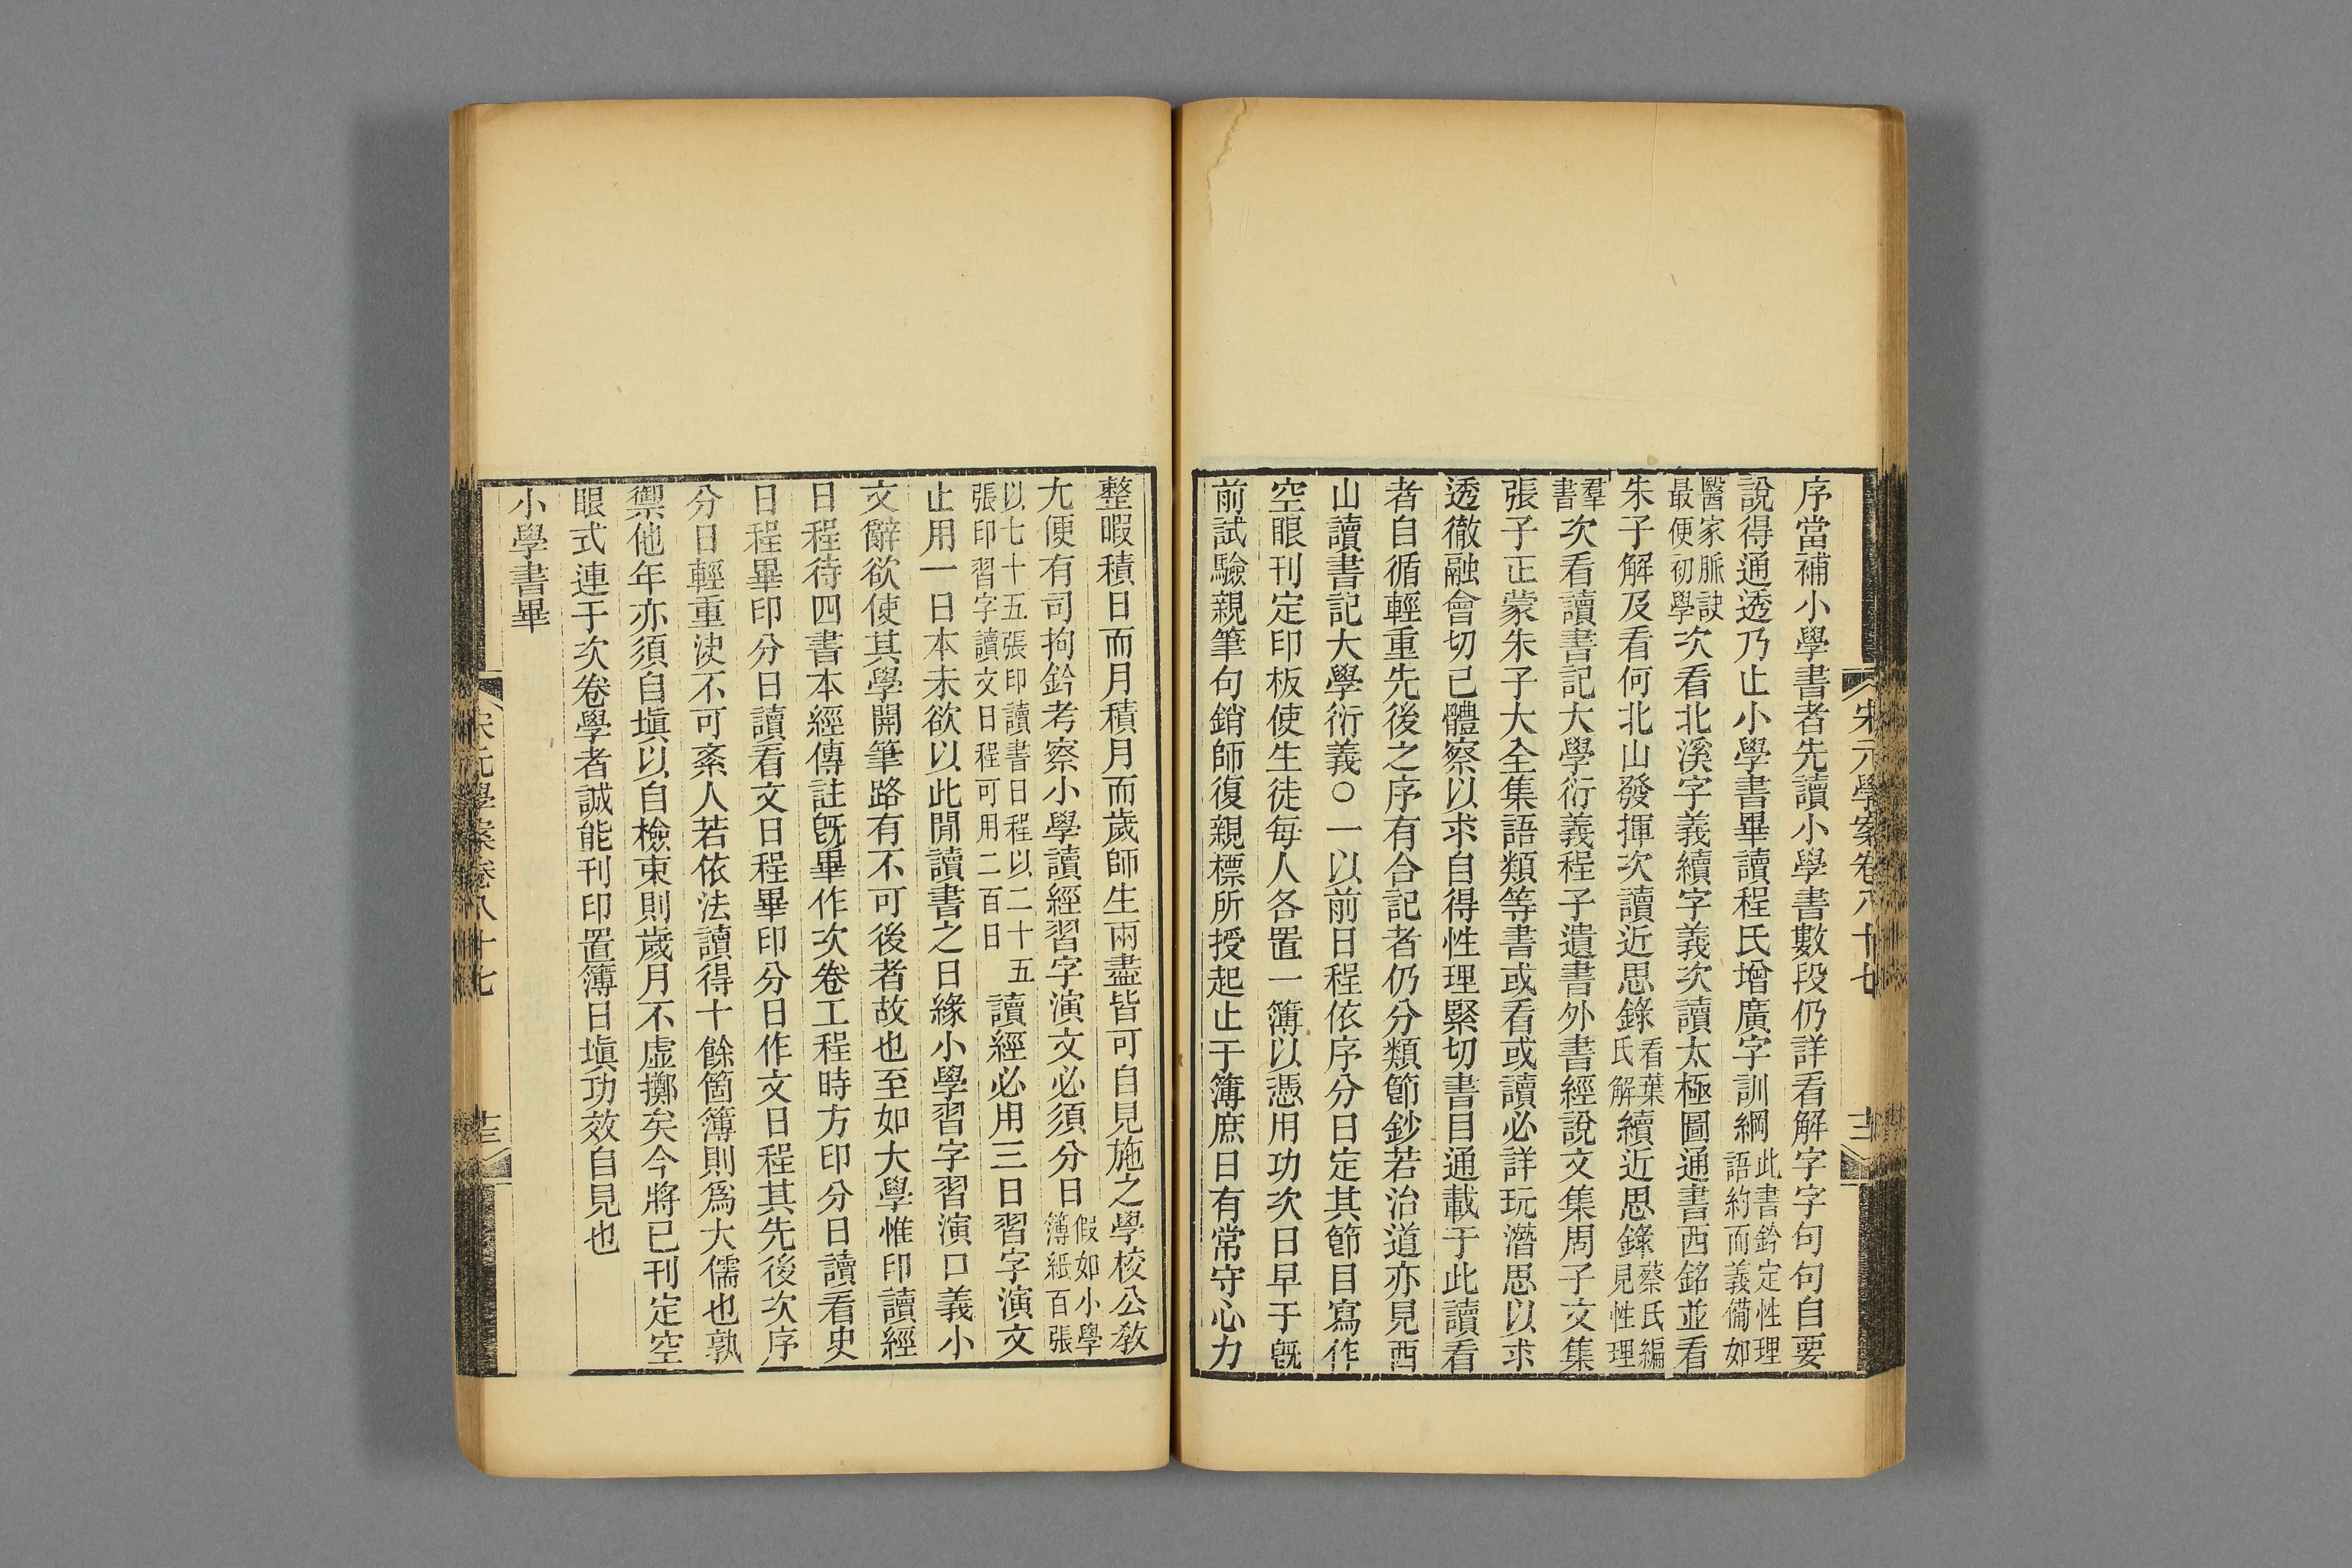 宋元學案卷八十七
十二
序當補小學書者先讀小學書數段仍詳看解字字句句自要
說得通透乃止小學書畢讀程氏增廣字訓綱此書銓定性理語約而義備如
醫家脈訣最便初學次看北溪字義續字義次讀太極圖通書西銘並看
朱子解及看何北山發揮次讀近思錄看葉氏解續近思錄蔡氏編見性理
羣書次看讀書記大學衍義程子遺書外書經說文集周子文集
張子正蒙朱子大全集語類等書或看或讀必詳玩潛思以求
透徹融會切己體察以求自得性理緊切書目通載于此讀看
者自循輕重先後之序有合記者仍分類節鈔若治道亦見西
山讀書記大學衍義○一以前日程依序分日定其節目寫作
空眼刊定印板使生徒每人各置一簿以憑用功次日早于旣
前試驗親筆句銷師復親標所授起止于簿庶日有常守心力
整暇積日而月積月而歲師生兩盡皆可自見施之學校公敎
尤便有司拘鈐考察小學讀經習字演文必須分日假如小學簿紙百張
以七十五張印讀書日程以二十五張印習字讀文日程可用二百日讀經必用三日習字演文
止用一日本未欲以此閒讀書之日緣小學習字習演口義小
文辭欲使其學開筆路有不可後者故也至如大學惟印讀經
日程待四書本經傳註旣畢作次卷工程時方印分日讀看史
日程畢印分日讀看文日程畢印分日作文日程其先後次序
分日輕重決不可紊人若依法讀得十餘箇簿則爲大儒也孰
禦他年亦須自塡以自檢束則歲月不虛擲矣今將已刊定空
眼式連于次卷學者誠能刊印置簿日塡功效自見也
小學書畢
宋元學案卷八十七
十三